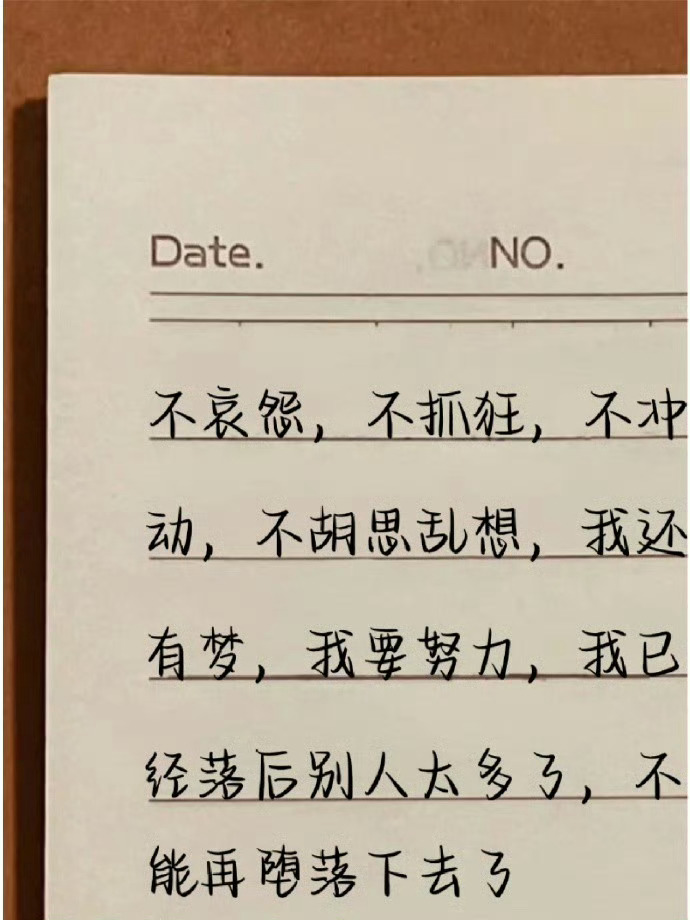 Date. NO.
不哀怨，不抓狂，不冲
动，不胡思乱想，我还
有梦，我要努力，我已
经落后别人太多了，不
能再堕落下去了